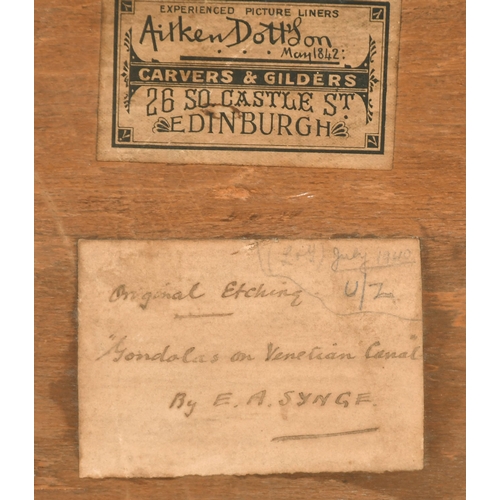 EXPERIENCED PICTURE LINERS
Aitken Dott & Son
May 1842:
CARVERS & GILDERS
26 SO. CASTLE ST.
EDINBURGH
July 1940
Original Etching
U/Z
"Gondolas on Venetian Canal"
By E. A. SYNGE.